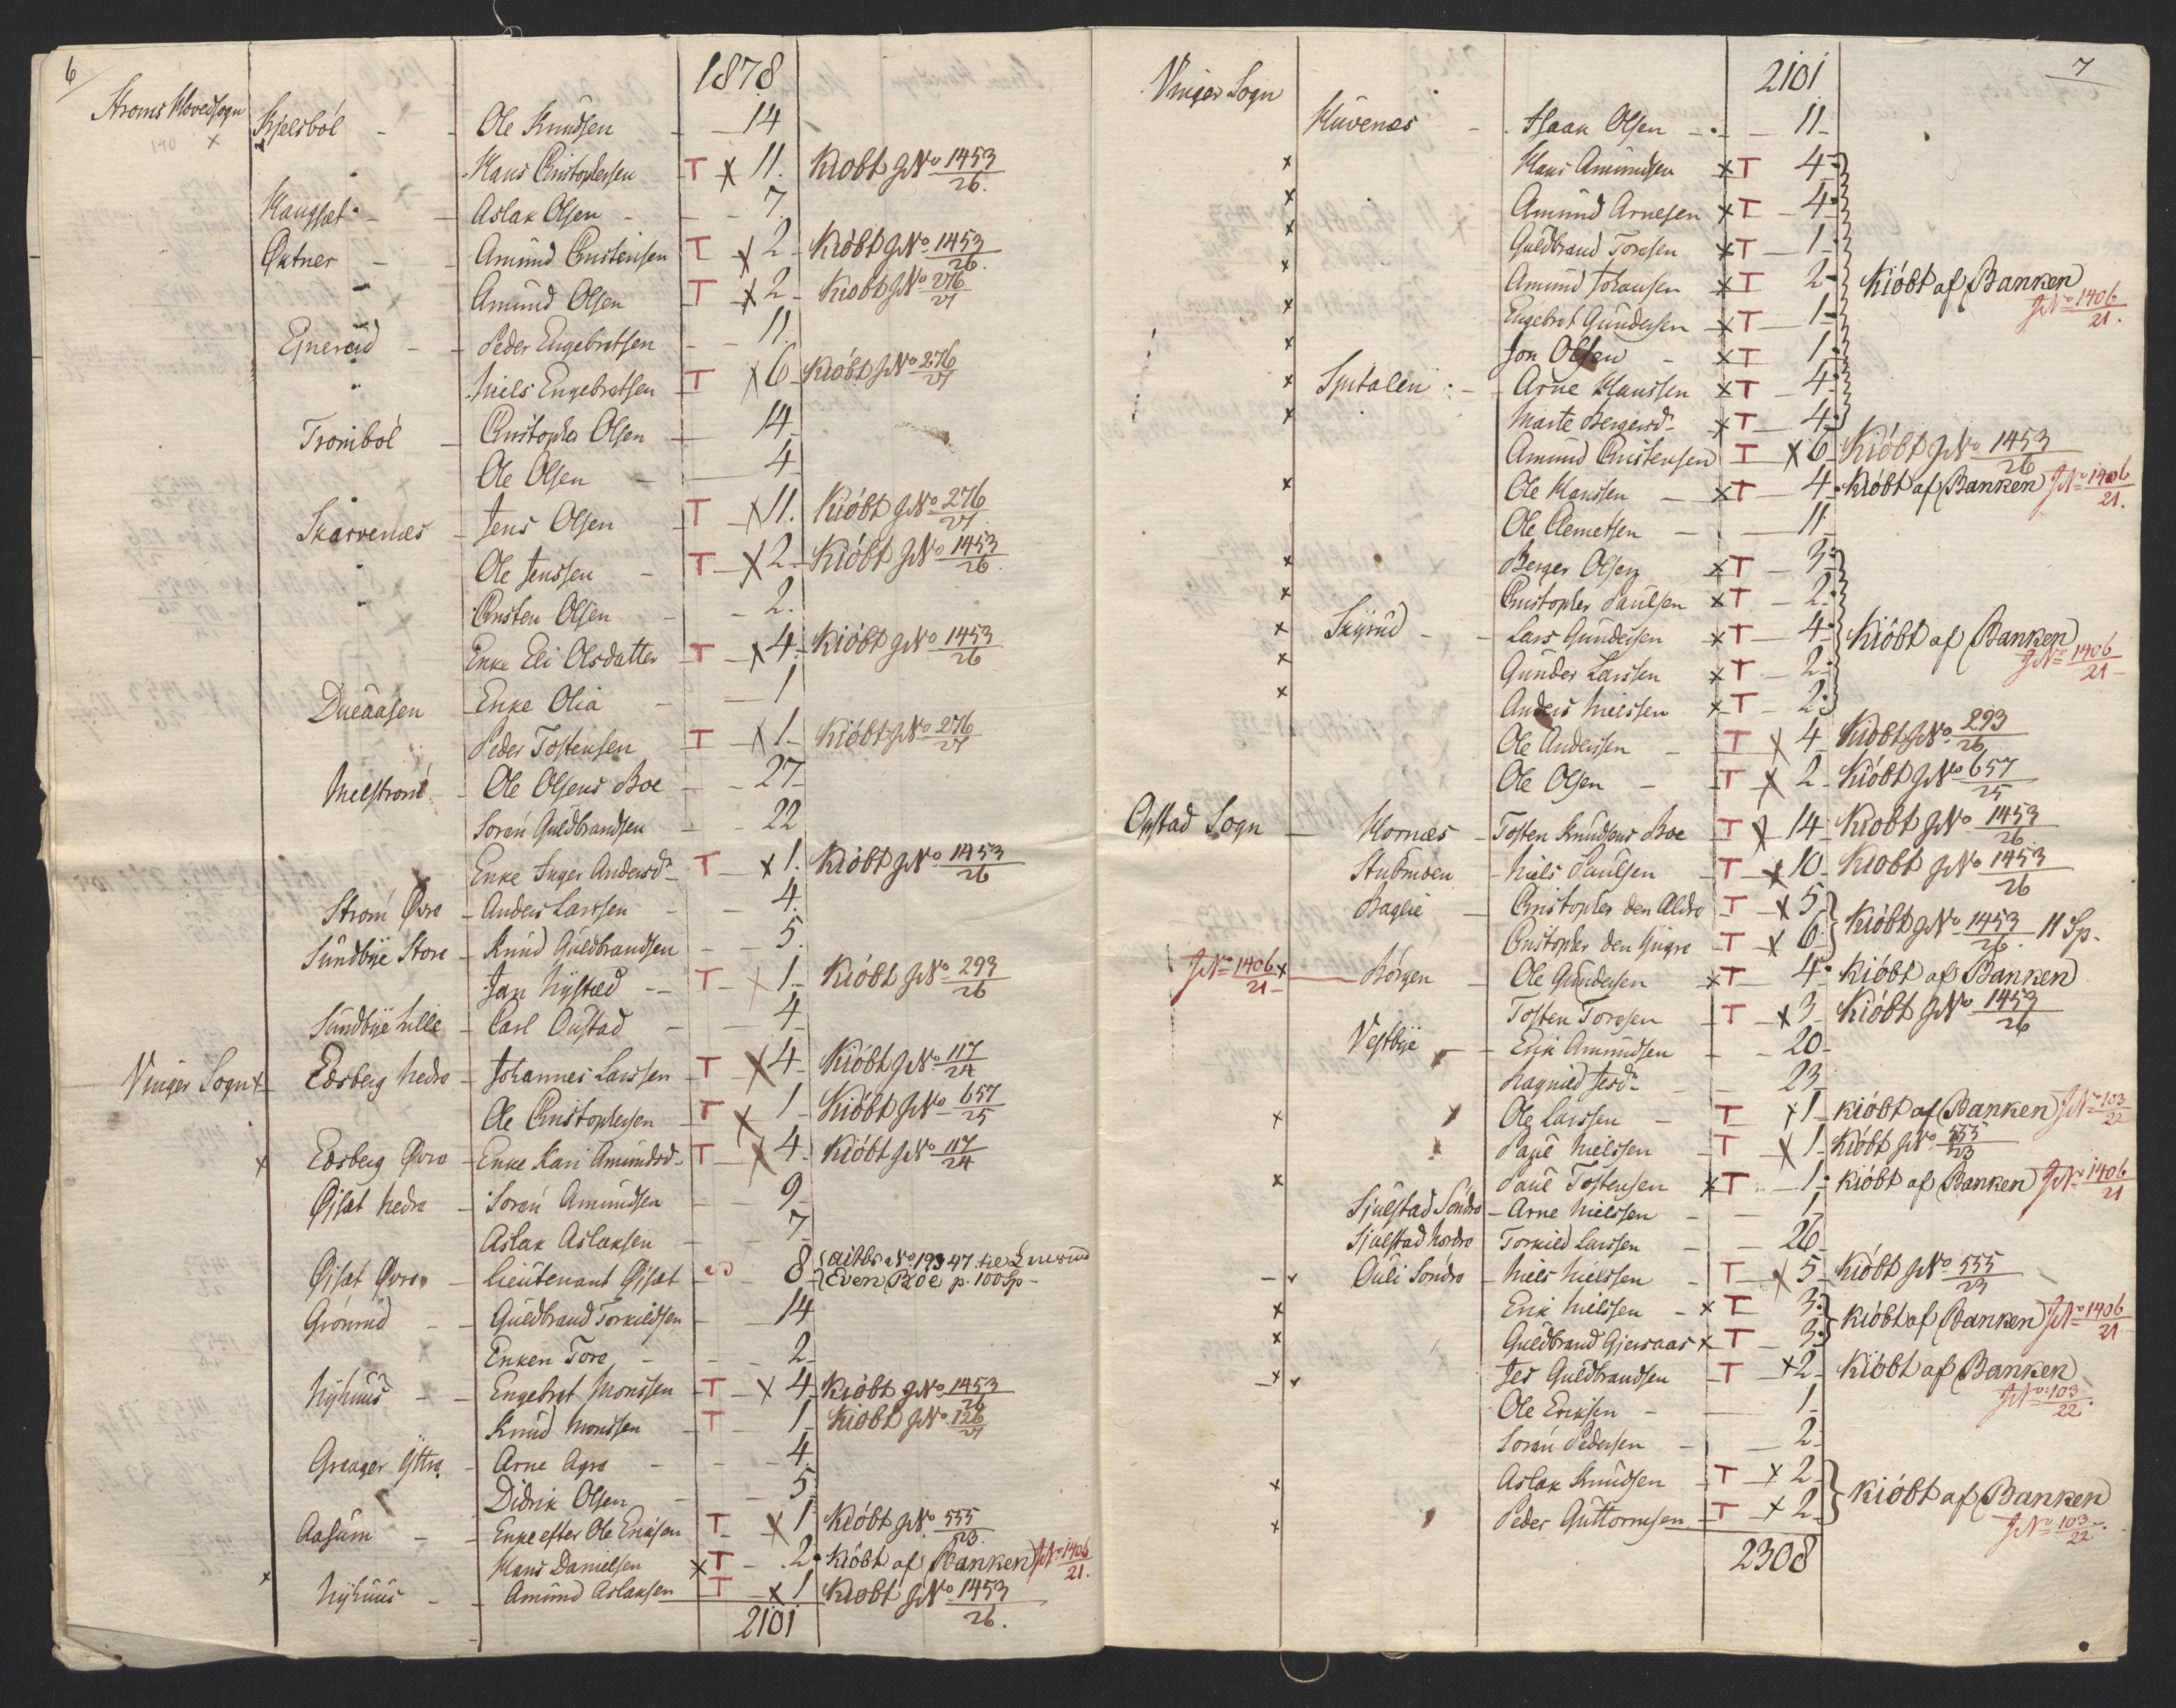 6
1878
Stroms Hovedsogn Kjelsböl - - Ole Knudsen - 14
140 x
Hans Christophersen T x 11. Kiöbt J No 1453/26.
Haugsæt - - Aslak Olsen - - 7.
Øktner - - Amund Christensen T x 2 - Kiöbt J No 1453/26.
Amund Olsen T x 2 - Kiöbt J No 276/27
Ejnerud - - Peder Engebretsen - - 11.
Niels Engebretsen T x 6 - Kiöbt J No 276/27
Tromböl - Christopher Olsen - 14
Ole Olsen - 4
Skarvenæs - Jens Olsen T x 11. Kiöbt J No 276/27.
Ole Jenssen - T x 2 - Kiöbt J No 1453/26.
Christen Olsen - 2.
Enke Eli Olsdatter T x 4 - Kiöbt J No 1453/26
Dueaasen - Enke Olia - 1
Peder Tostensen T x 1 - Kiöbt J No 276/27
Melstrom - Ole Olsens Boe - 27 -
Soren Guldbrandsen - 22
Enke Inger Andersd. T x 1. Kiöbt J No 1453/26
Strom Øvre - Anders Larssen - 4.
Sundbye Store - Knud Guldbrandsen - 5.
Jan Nystæd - T x 1 - Kiöbt J No 293/26
Sundbye Lille - Carl Oustad - 4 -
Vinger Sogn x - Edsberg Nedre - Johannes Larssen T x 4 - Kiöbt J No 117/24
Ole Christophersen T x 1 - Kiöbt J No 657/25
x Edsberg Øvre - Enke Kari Amundsd. T x 4 - Kiöbt J No 117/24
Øisæt Nedre - Soren Amundsen - 9 -
Aslak Aslaksen - 7 -
Øisæt Øvre - Lieutenant Øisæt - 8 - No 19347 til
Even Boe p. 100 Sp -
Gronrud - Guldbrand Torkildsen - 14
Enken Tore - 2 -
Nyhuus - - Engebret Monssen T x 4 - Kiöbt J No 1453/26
Knud Monssen T - 1 - Kiöbt J No 126/27
Graager Yttre - Arne Agre - 4.
Didrik Olsen - 5
Aasum - - Enke efter Ole Eriksen T x 1 Kiöbt J No 555/23.
Hans Danielsen x T - 2 Kiöbt af Banken J No 1406/21.
x Nyhuus - - Amund Aslaksen T x 1. Kiöbt J No 1453/26.
2101
7
2101
Vinger Sogn
Huvenæs - Isaak Olsen - 11 -
x Hans Amundsen x T 4
x Amund Arnesen x T - 4
x Guldbrand Toresen x T - 1
x Amund Johansen x T 2 Kiöbt af Banken
J No 1406/21.
x Engebret Gundersen x T - 1
x Jon Olsen - x T 1
x Spitalen - Arne Hanssen x T - 4
x Marte Bergersd. x T - 4
Amund Christensen T x 6 Kiöbt J No 1453/26
x Ole Hanssen - x T - 4 Kiöbt af Banken J No 1406/21.
Ole Clemetsen - 11
x Berger Olsen x T - 3
x Christopher Paulsen x T - 2
x Skyrud - - Lars Gundersen x T - 4 Kiöbt af Banken
J No 1406/21 -
x Gunder Larssen x T - 2
x Anders Nielssen x T - 2
Ole Anderssen - T x 4 Kiöbt J No 293/26
Ole Olsen - T x 2 - Kiöbt J No 657/25
Opstad Sogn - Hornæs - Tosten Knudsens Boe T x 14 Kiöbt J No 1453/26.
Stubmoen - Niels Paulsen - T x 10 - Kiöbt J No 1453/26
Baglie - Christopher den Aldre T x 5
Christopher den Yngre T x 6 Kiöbt J No 1453/26. 11 Sp.
J No 1406/21 x Börgen - Ole Gundersen x T - 4 Kiöbt af Banken
Tosten Toresen - T x 3 - Kiöbt J No 1453/26
Vestbye - - Erik Amundsen - 20 -
Ragnild Jesd. - 23 -
x Ole Larssen - T x 1 - Kiöbt af Banken J No 103/22
Paul Nielssen - T x 1 - Kiöbt J No 555/23
x Paul Tostensen x T - 1 Kiöbt af Banken J No 1406/21
Sjulstad Söndre - Arne Nielssen - 1
Sjulstad Nordre Torkild Larssen - 26 -
Ouli Söndre - Niels Nielssen - T x 5 - Kiöbt J No 555/23
x Erik Nielssen - x T - 3 Kiöbt af Banken J No 1406/21
x Guldbrand Gjersaas x T - 3
x Jes Guldbrandsen T x 2 - Kiöbt af Banken
J No 103/22.
Ole Eriksen - 1 -
Soren Pedersen - 2 -
x Aslak Knudsen - T x 2 - Kiöbt af Banken
x Peder Guttormsen - T x 2 -
J No 103/22.
2308